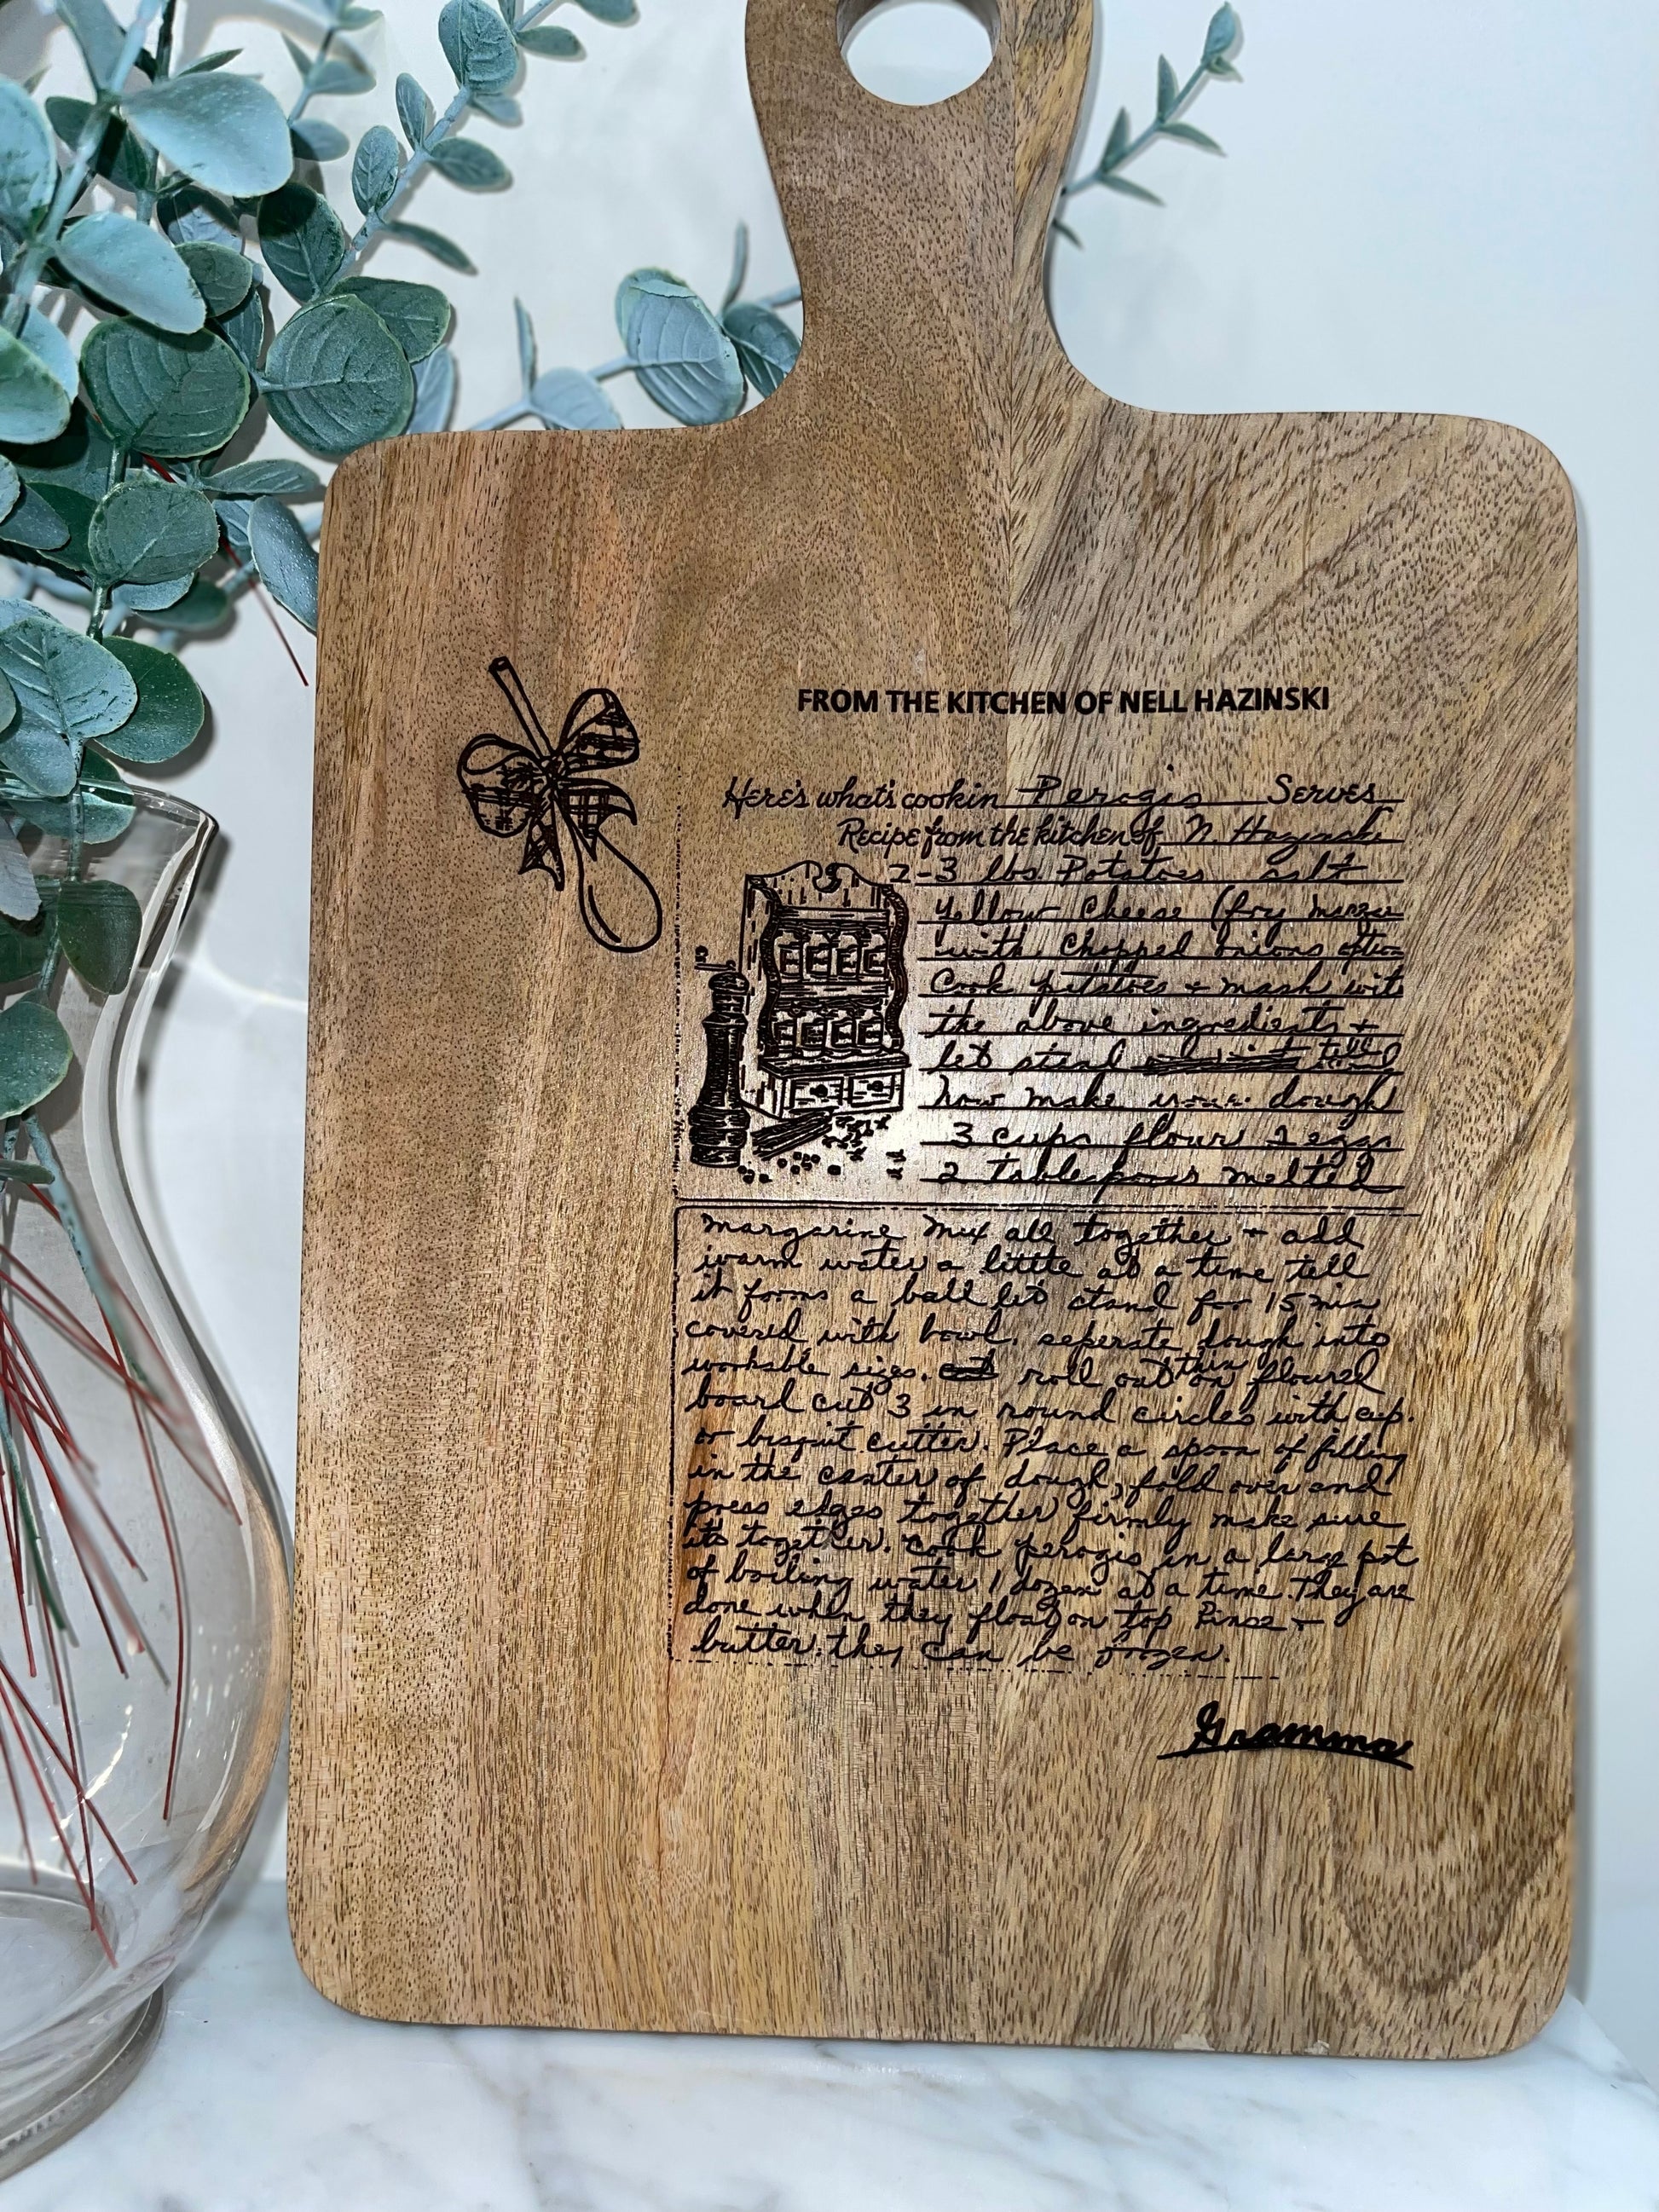 FROM THE KITCHEN OF NELL HAZINSKI
Here's what's cookin Perogis Serves
Recipe from the kitchen of N. Hazinski
2-3 lbs. Potatoes salt
yellow cheese (fry margar
with chopped onions option
Cook potatoes + mash with
the above ingredients +
let stand till
now make your dough
3 cups flour 2 eggs
2 tablespoons melted
margarine Mix all together + add
warm water a little at a time till
it forms a ball let stand for 15 min
covered with bowl. seperate dough into
workable sizes. cut roll out thin on floured
board cut 3 in round circles with cup.
or bisquit cutter. Place a spoon of filling
in the center of dough, fold over and
press edges together firmly make sure
its together. Cook perogis in a large pot
of boiling water 1 dozen at a time. They are
done when they float on top Rinse +
butter. they can be frozen.
Gramma